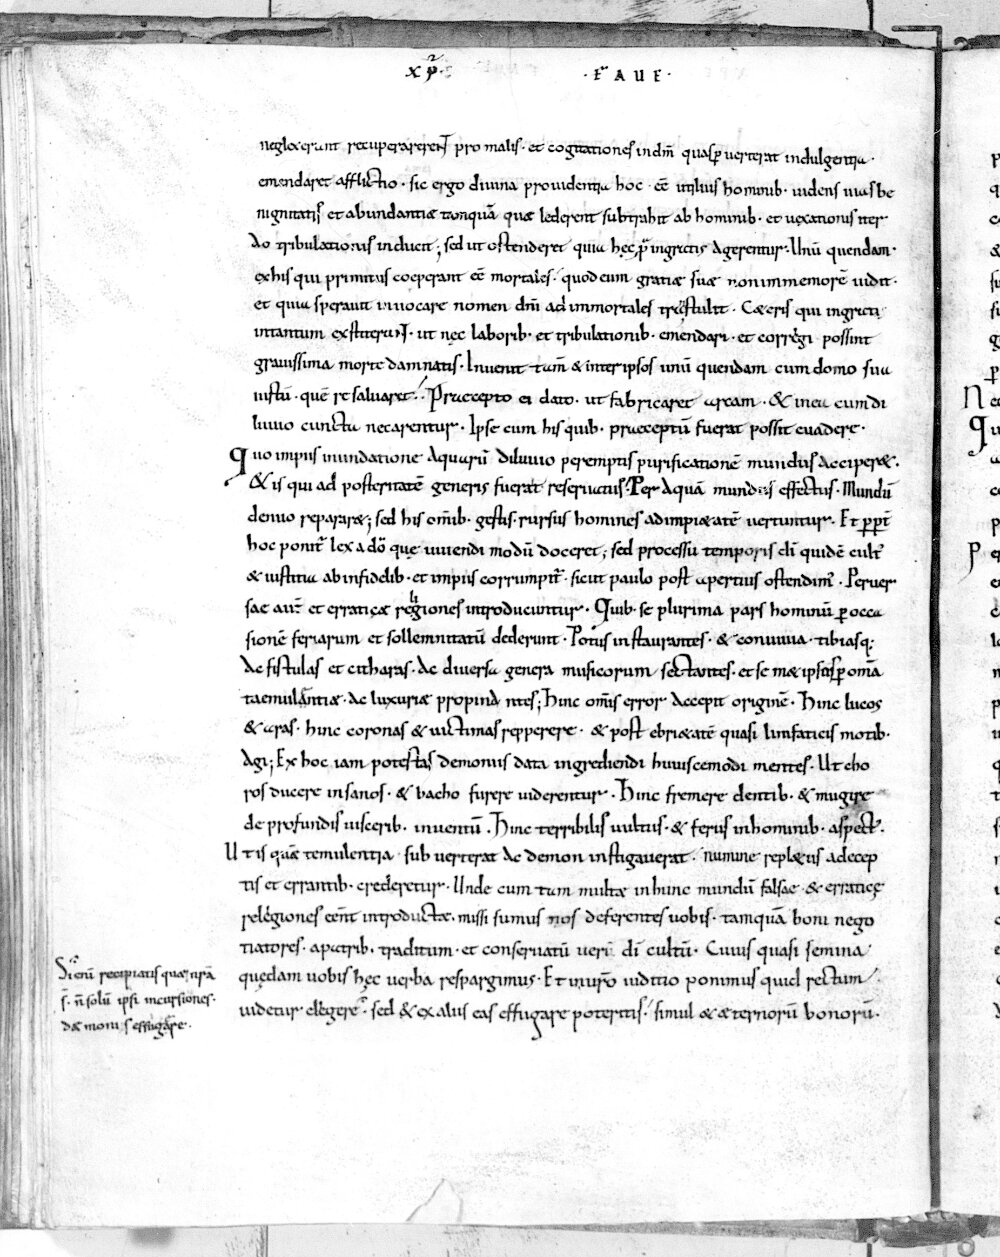 xp̄s · FAUE ·
neglexerant recuperarent pro malis · et cogitationes in dm̄ quas p̄uerterat indulgentia ·
emendaret afflictio · sic ergo diuina prouidentia hoc · eē utilius hominib · uidens uias be
nignitatis et abundantiæ tanquā quæ lederent subtrahit ab hominib · et uexationis iter
Ac tribulationis inducit ; sed ut ostenderet quia hęc p̄ ingratis agerentur · Unū quendam ·
ex his qui primitus coeperant eē mortales · quod eum gratiæ suæ non immemorē uidit ·
et quia sperauit inuocare nomen dn̄i ad immortales transtulit · Cæteris qui ingrati
intantum exstiterunt · ut nec laborib · et tribulationib · emendari · et corrigi possint
grauissima morte damnatis · Inuenit tam̄ & inter ipsos unū quendam cum domo sua
iustū · quē reseruaret · Præcepto ei dato · ut fabricaret arcam · & in ea cum di
luuio cuncta necarentur · Ipse cum his quib · præceptū fuerat possit euadere ·
Quo impiis inundatione Aquarū Diluuio peremptis purificationē mundus acciperet ·
& is qui ad posteritatē generis fuerat reseruatus · Per Aquā mundus effectus · Mundū
denuo repararet ; sed his om̄ib · gestis · rursus homines ad impietatē uertuntur · Et p̱p̱t̄
hoc ponit̄ lex a dō que uiuendi modū doceret ; sed processu temporis dī quidē cult᷒
& iustitia ab infidelib · et impiis corrumpit̄ · sicut paulo post apertius ostendim᷒ · Peruer
sae aut̄ et erraticæ religiones introducuntur · Quib · se plurima pars hominū p̱ occa
sionē feriarum et sollemnitatū dederunt · Potus instaurantes · & conuiuia · tibiasq;
Ac fistulas et citharas · Ac diuersa genera musicorum sectantes · et se metipsos p̱ omīa
taemulantiæ · Ac luxuriæ propinantes ; Hinc om̄is error accepit originē · Hinc lucos
& aras · hinc coronas & uictimas repperere · & post ebrietatē quasi limfaticis motib ·
Agi ; Ex hoc iam potestas demoniis data ingrediendi huiuscemodi mentes · Ut cho
ros ducere insanos · & bacho furere uiderentur · Hinc fremere dentib · & mugire
de profundis uiscerib · inuentū · Hinc terribilis uultus · & ferus in hominib · aspect᷒ ·
Ut is quē temulentia sub uerterat Ac demon instigauerat · numine repletus a decep
tis et errantib · crederetur · Unde cum tam multæ in hunc mundū falsae & erraticę
religiones eēnt introductæ · missi sumus nos deferentes uobis · tamquā boni nego
tiatores · a patrib · traditum · et conseruatū ueri dī cultū · Cuius quasi semina
quędam uobis hęc uerba respargimus · Et in uro iuditio ponimus quid rectum
uidetur eligere · sed & ex aliis eas effugare poteritis · simul & æternorū bonorū ·
Si enī recipiatis quæ nrā
s̄ · n̄ solū ipsi incursiones ·
dæmonis effugare ·